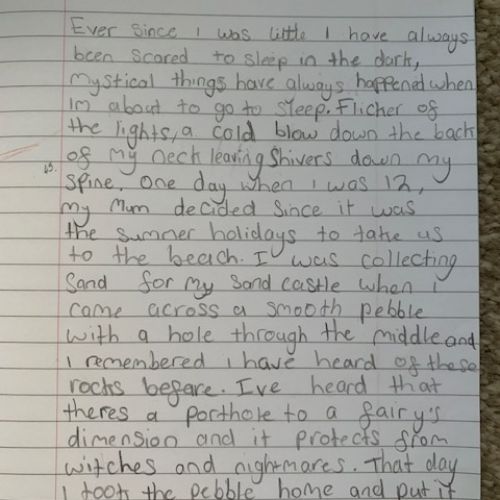 Ever since I was little I have always
been scared to sleep in the dark,
mystical things have always happened when
im about to go to sleep. Flicher of
the lights, a cold blow down the back
of my neck leaving shivers down my
spine. One day when I was 12,
my Mum decided since it was
the summer holidays to take us
to the beach. I was collecting
sand for my sand castle when I
come across a smooth pebble
with a hole through the middle and
I remembered I have heard of these
rocks before. Ive heard that
theres a porthole to a fairy's
dimension and it protects from
witches and nightmares. That day
I took the pebble home and put it